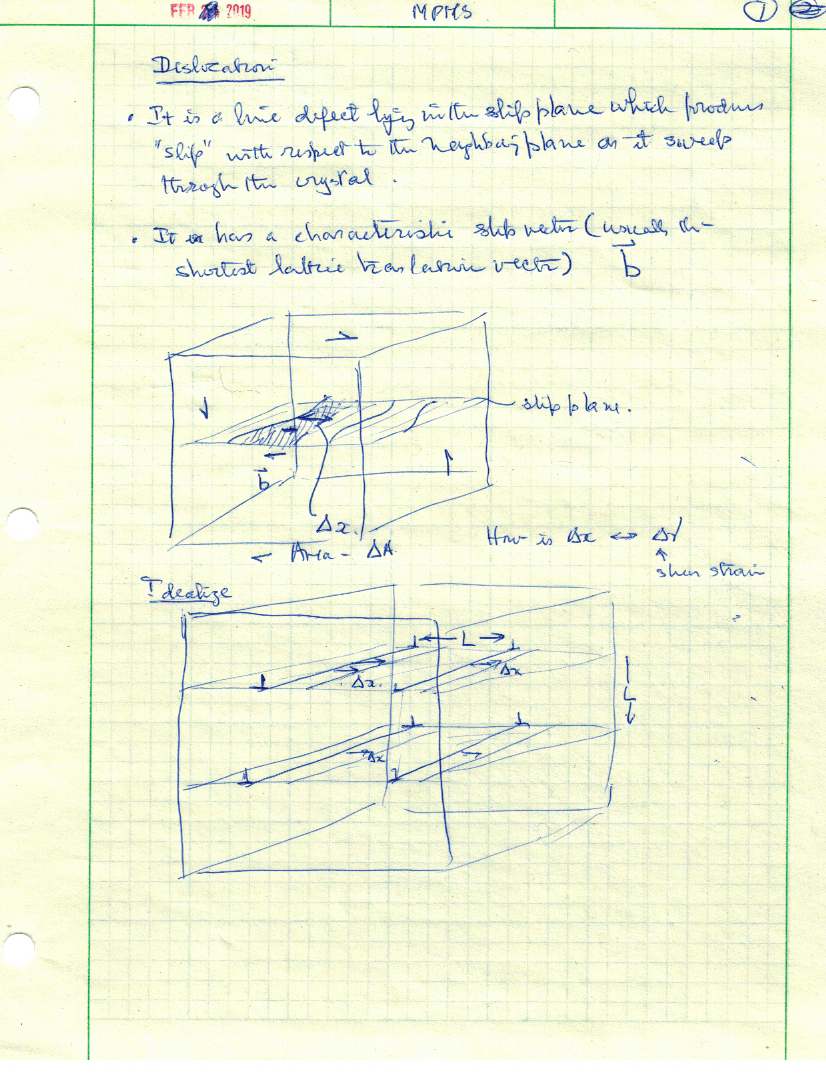 FEB 2019
MPMS
1
Dislocation
• It is a line defect lying in the slip plane which produces
"slip" with respect to the neighboring plane as it sweeps
through the crystal.
• It has a characteristic slip vector (usually the
shortest lattice translation vector) b
slip plane.
b
Δx.
← Area - ΔA
How is Δx ↔ Δγ
↑
shear strain
Idealize
⊥ ← L → ⊥
Δx.
Δx
⊥
L
⊥ ⊥
Δx
⊥